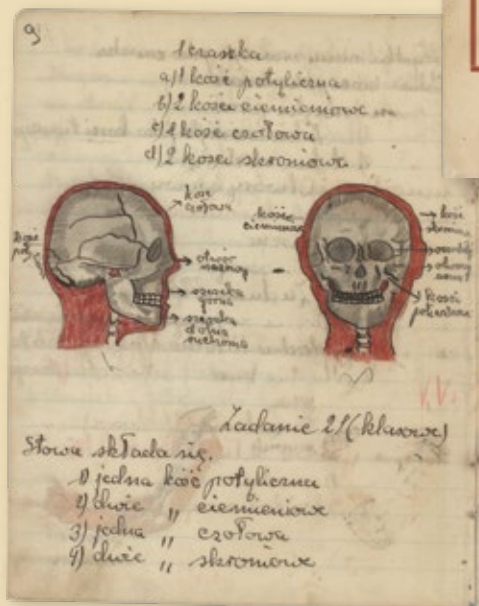 9
1 czaszka
a) 1 kość potyliczna
b) 2 kości ciemieniowe
c) 1 kość czołowa
d) 2 kości skroniowe
kość
czołowa
kość
pot.
otwór
nosowy
szczęka
górna
szczęka
dolna
ruchoma
kości
ciemien.
kość
skroniowa
kość
policzkowa
Zadanie 21 (klasowe)
Głowa składa się.
1) jedna kość potyliczna
2) dwie „ ciemieniowe
3) jedna „ czołowa
4) dwie „ skroniowe